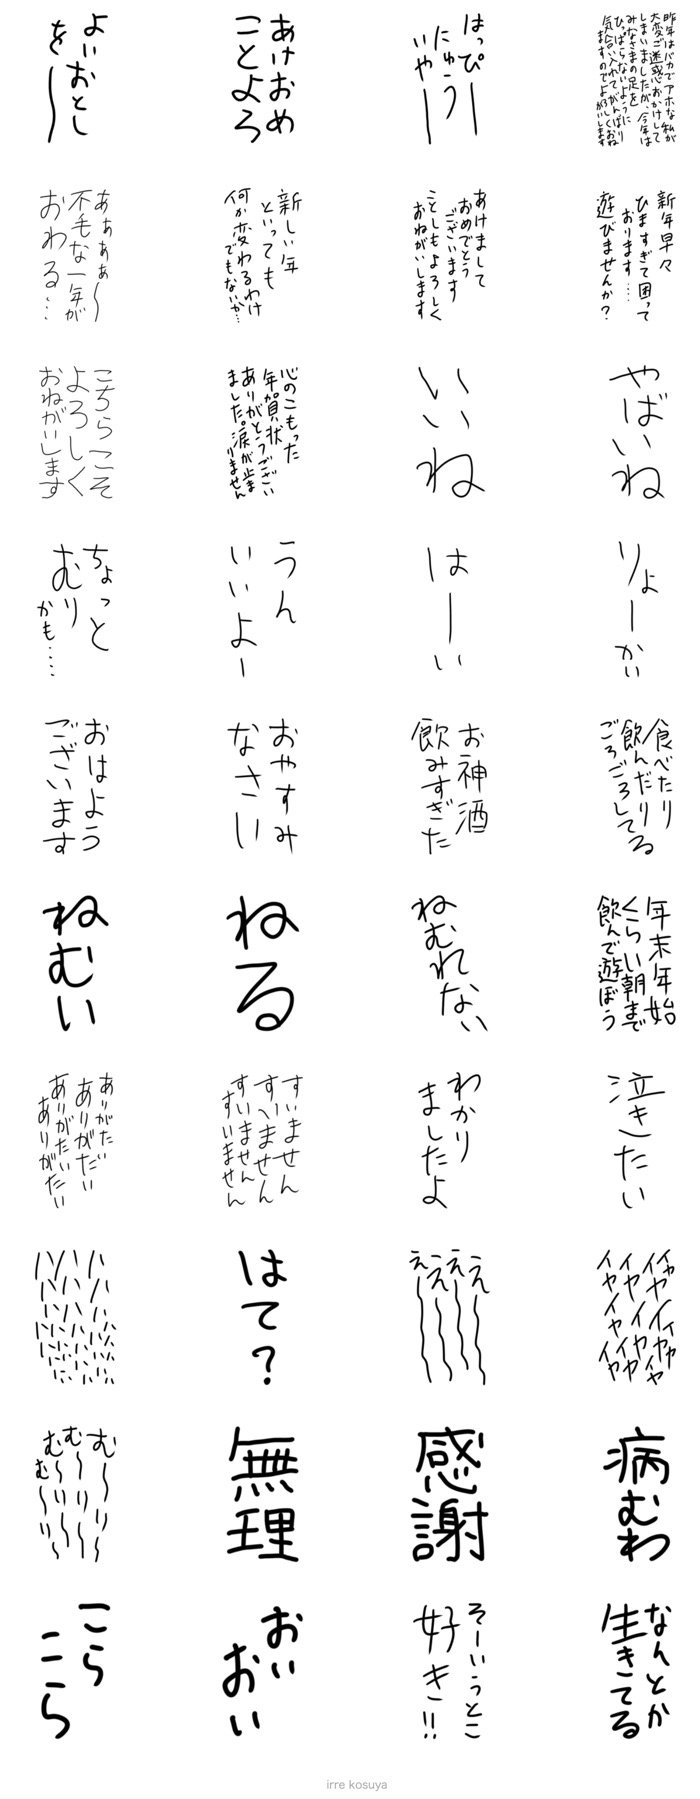 よいおとし
を〜
あけおめ
ことよろ
はっぴー
にゅう
いやー
昨年はバカでアホな私が
大変ご迷惑おかけして
しまいましたが、今年は
みなさまの足を
ひっぱらないように
気合い入れてがんばり
ますのでよろしくおねがいします
ああぁぁ〜
不毛な一年が
おわる…
新しい年
といっても
何か変わるわけ
でもないか…
あけまして
おめでとう
ございます
ことしもよろしく
おねがいします
新年早々
ひますぎて困って
おります….
遊びませんか？
こちらこそ
よろしく
おねがいします
心のこもった
年賀状
ありがとうござい
ました。涙が止ま
りません
いいね
やばいね
ちょっと
むり
かも….
うん
いいよー
はーい
りょーかい
おはよう
ございます
おやすみ
なさい
お神酒
飲みすぎた
食べたり
飲んだり
ごろごろしてる
ねむい
ねる
ねむれない
年末年始
くらい朝まで
飲んで遊ぼう
ありがたい
ありがたい
ありがたい
ありがたい
すいません
すいません
すいません
すいません
わかり
ましたよ
泣きたい
はて？
え〜
え〜
え〜
え〜
む〜り〜
む〜り〜
む〜り〜
む〜り〜
無理
感謝
病むわ
こら
こら
おい
おい
そーいうとこ
好き!!
なんとか
生きてる
irre kosuya